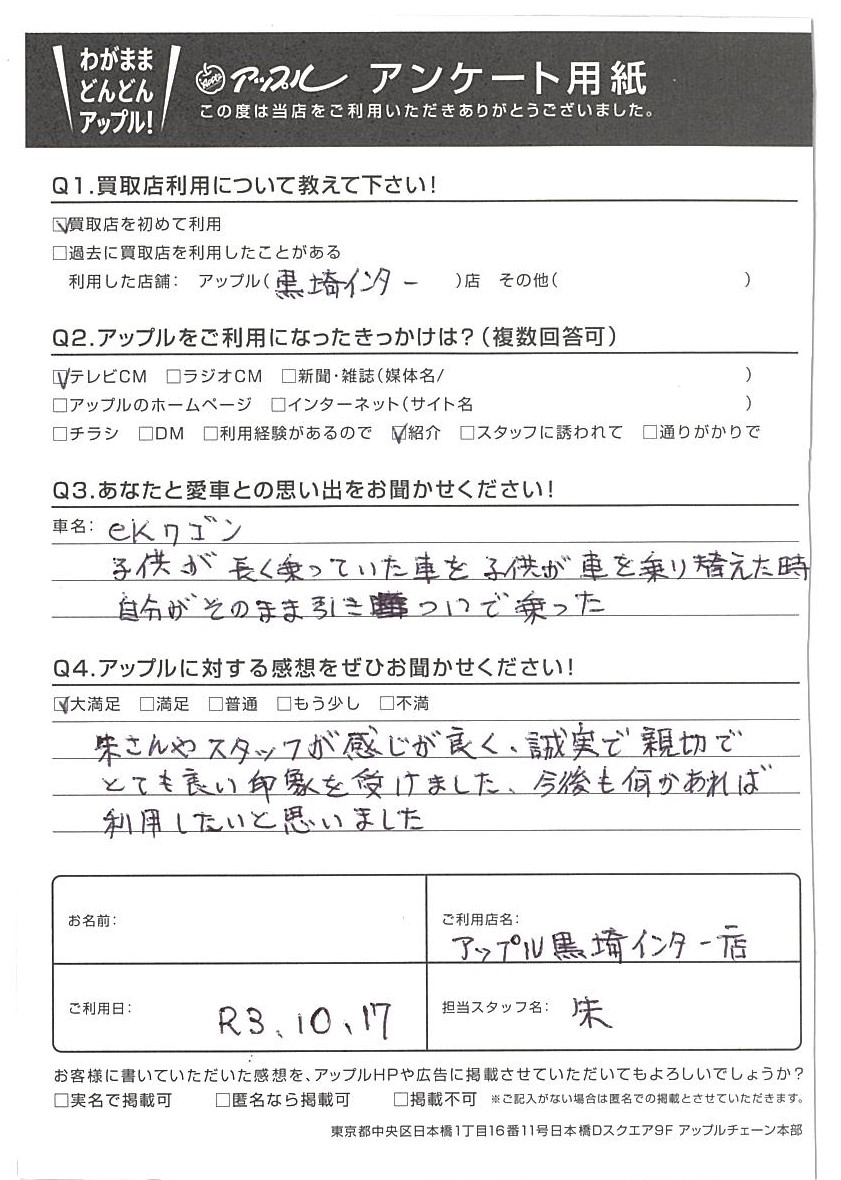 わがまま
どんどん
アップル!
Apple アップル アンケート用紙
この度は当店をご利用いただきありがとうございました。
Q1.買取店利用について教えて下さい!
☑買取店を初めて利用
□過去に買取店を利用したことがある
利用した店舗: アップル(黒埼インター )店 その他( )
Q2.アップルをご利用になったきっかけは?(複数回答可)
☑テレビCM □ラジオCM □新聞・雑誌(媒体名/ )
□アップルのホームページ □インターネット(サイト名 )
□チラシ □DM □利用経験があるので ☑紹介 □スタッフに誘われて □通りがかりで
Q3.あなたと愛車との思い出をお聞かせください!
車名: eKワゴン
子供が長く乗っていた車を子供が車を乗り替えた時
自分がそのまま引きついで乗った
Q4.アップルに対する感想をぜひお聞かせください!
☑大満足 □満足 □普通 □もう少し □不満
朱さんやスタッフが感じが良く、誠実で親切で
とても良い印象を受けました、今後も何かあれば
利用したいと思いました
お名前:
ご利用店名:
アップル黒埼インター店
ご利用日: R3、10、17
担当スタッフ名: 朱
お客様に書いていただいた感想を、アップルHPや広告に掲載させていただいてもよろしいでしょうか?
□実名で掲載可 □匿名なら掲載可 □掲載不可 ※ご記入がない場合は匿名での掲載とさせていただきます。
東京都中央区日本橋1丁目16番11号日本橋Dスクエア9F アップルチェーン本部